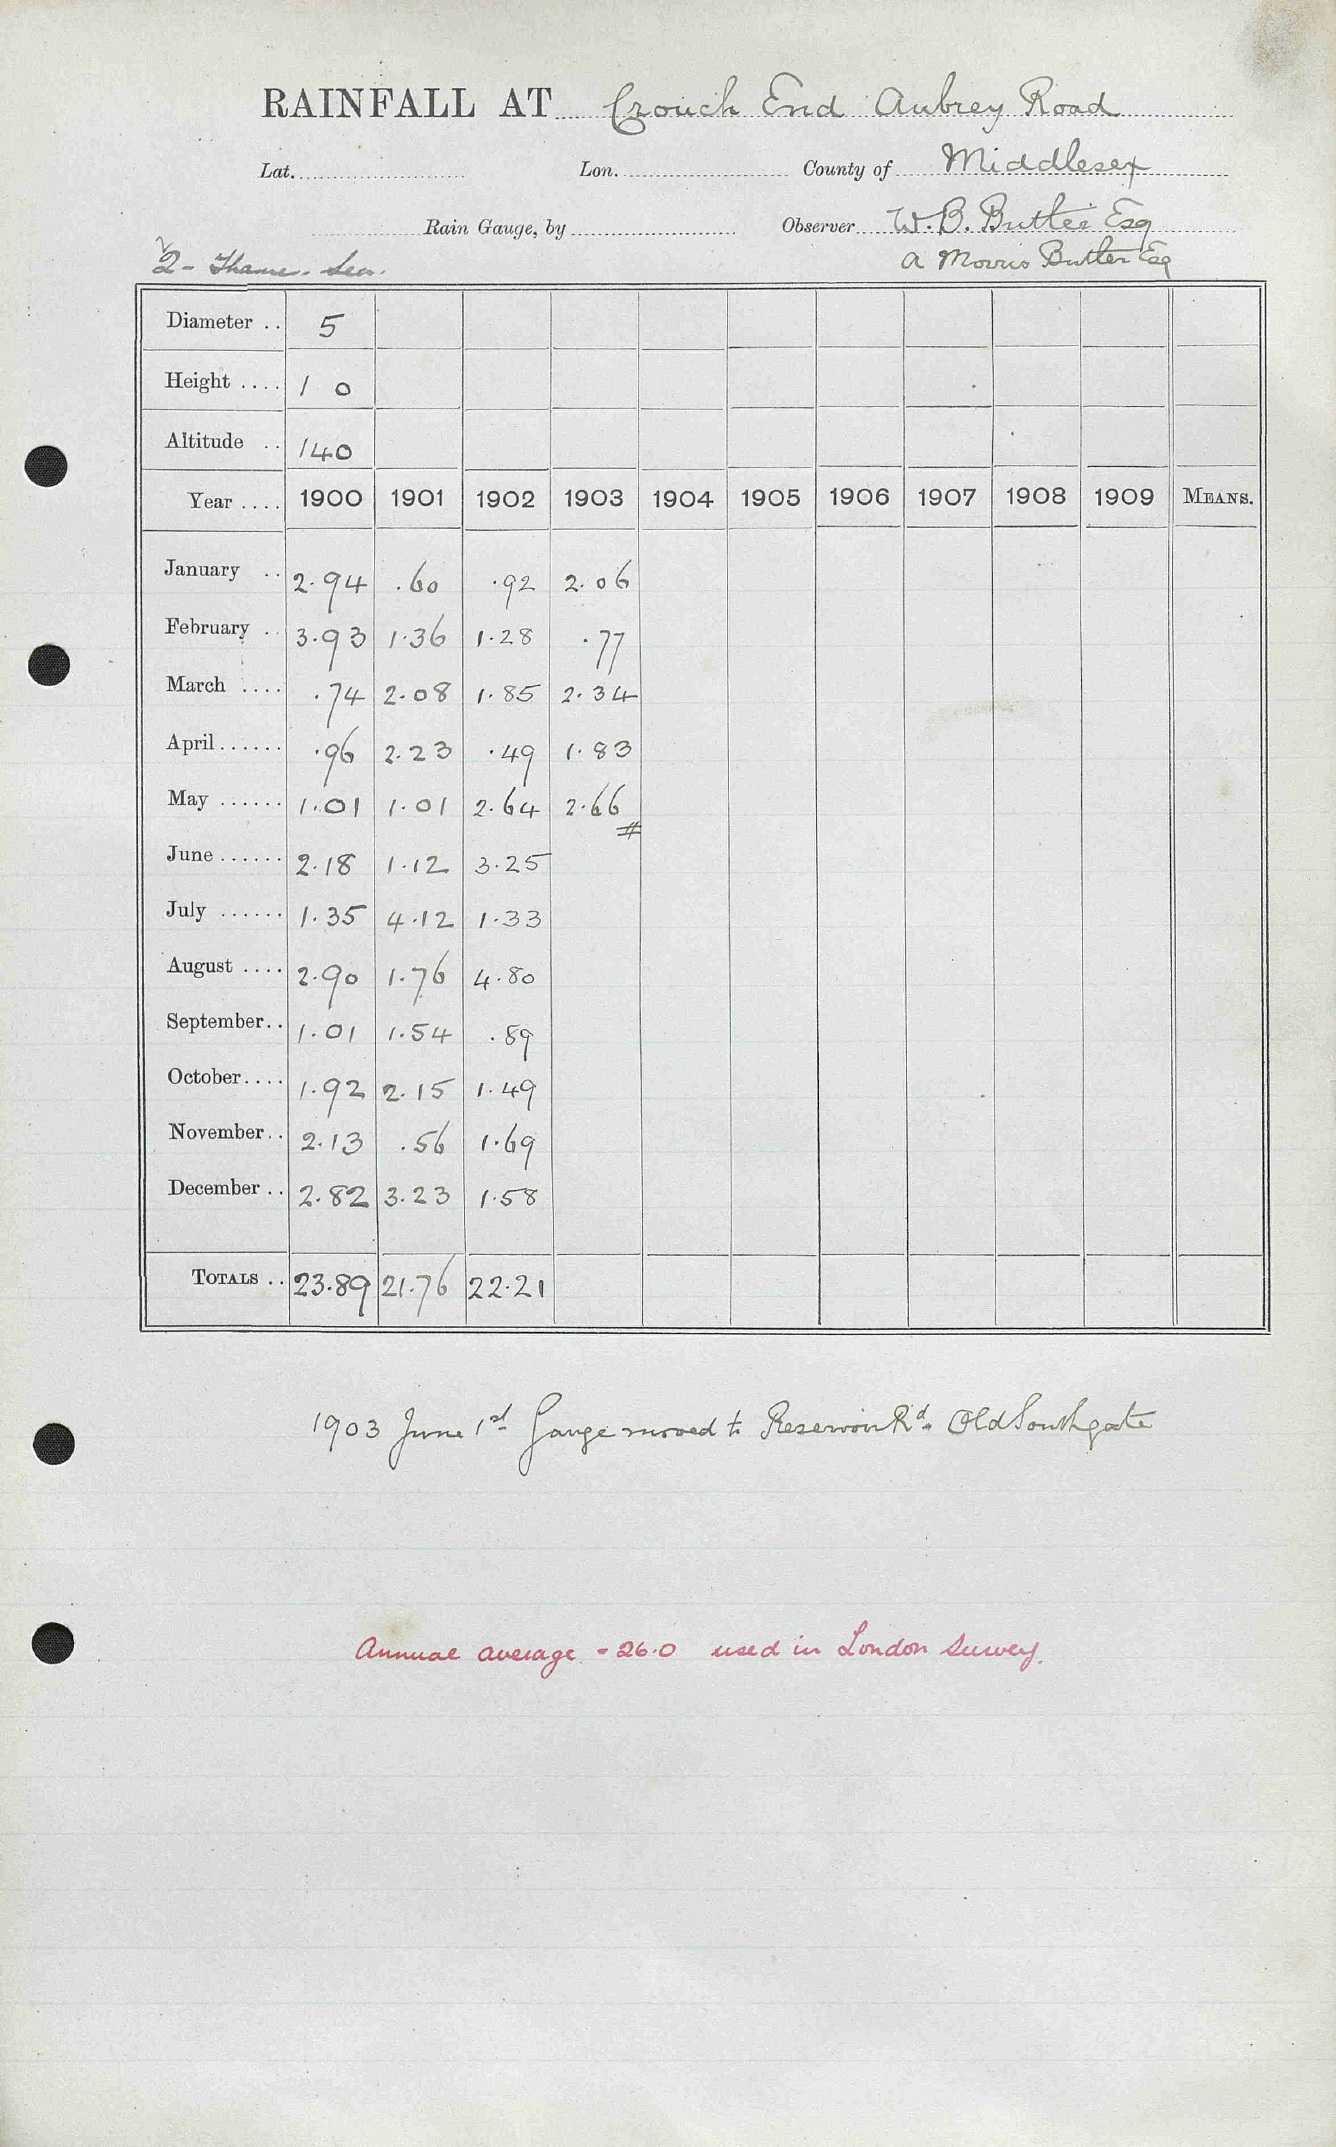 RAINFALL AT Crouch End Aubrey Road
Lat. Lon. County of Middlesex
Rain Gauge, by Observer W. B. Butler Esq
A Morris Butler Esq
2 - Thames. Lea.
Diameter .. 5
Height .... 1 0
Altitude .. 140
Year .... 1900 1901 1902 1903 1904 1905 1906 1907 1908 1909 MEANS.
January .. 2.94 .60 .92 2.06
February .. 3.93 1.36 1.28 .77
March .... .74 2.08 1.85 2.34
April ...... .96 2.23 .49 1.83
May ...... 1.01 1.01 2.64 2.66
#
June ...... 2.18 1.12 3.25
July ...... 1.35 4.12 1.33
August .... 2.90 1.76 4.80
September.. 1.01 1.54 .89
October.... 1.92 2.15 1.49
November.. 2.13 .56 1.69
December .. 2.82 3.23 1.58
TOTALS .. 23.89 21.76 22.21
1903 June 1st Gauge moved to Reservoir Rd. Old Southgate
Annual average = 26.0 used in London Survey.